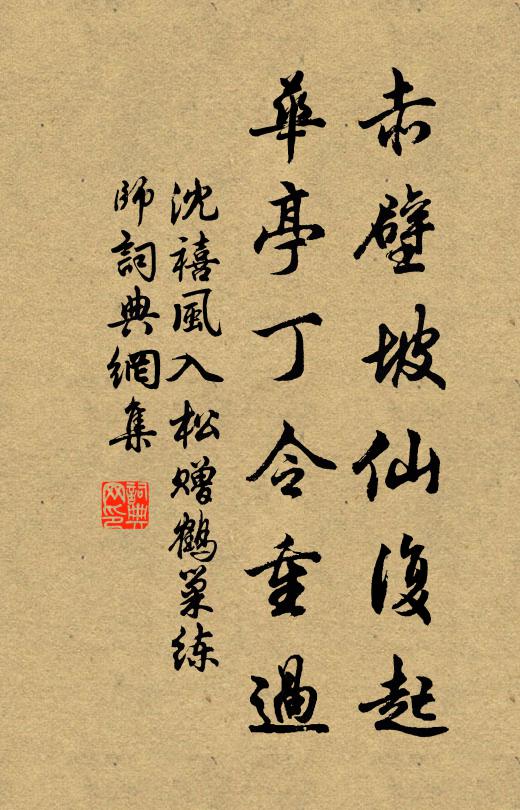 赤壁坡仙復起
華亭丁令重過
沈禧風入松赠鶴巢练
師詞典網集
詞典
网印